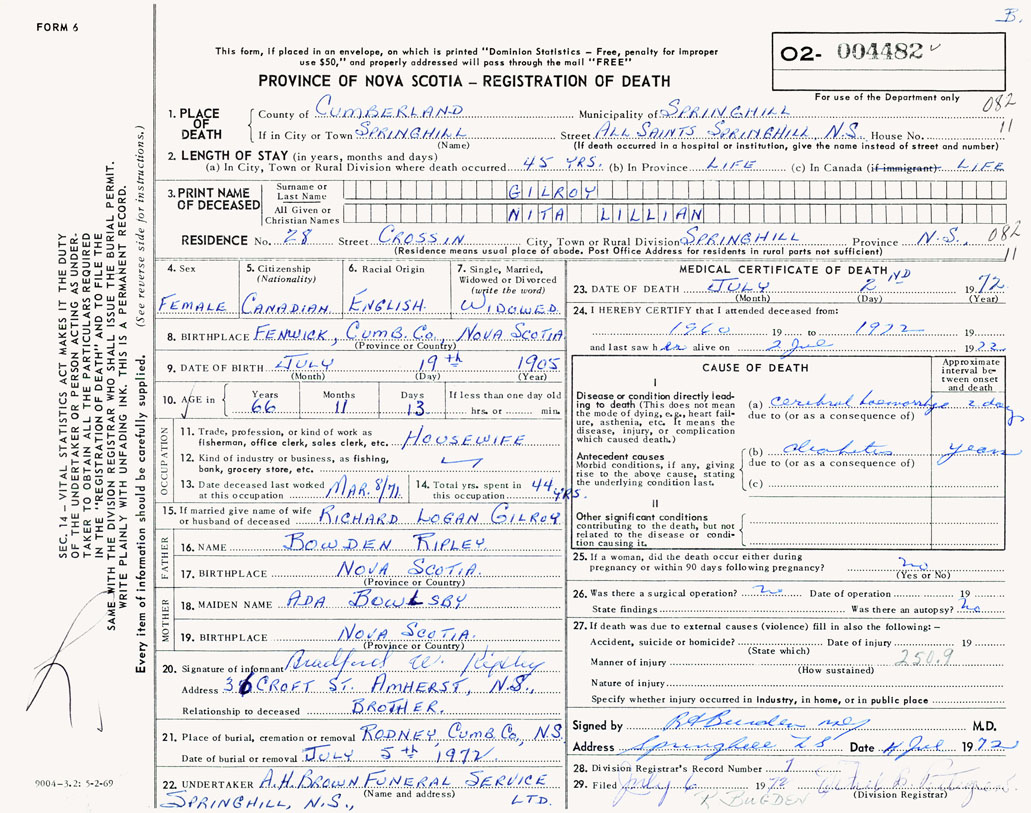 B.
FORM 6
This form, if placed in an envelope, on which is printed "Dominion Statistics – Free, penalty for improper
use $50," and properly addressed will pass through the mail "FREE"
PROVINCE OF NOVA SCOTIA – REGISTRATION OF DEATH
02- 004482
For use of the Department only
082
11
SEC. 14 – VITAL STATISTICS ACT MAKES IT THE DUTY
OF THE UNDERTAKER OR PERSON ACTING AS UNDER-
TAKER TO OBTAIN ALL THE PARTICULARS REQUIRED
IN THE "REGISTRATION OF DEATH" AND TO FILE THE
SAME WITH THE DIVISION REGISTRAR WHO SHALL ISSUE THE BURIAL PERMIT.
WRITE PLAINLY WITH UNFADING INK. THIS IS A PERMANENT RECORD.
Every item of information should be carefully supplied. (See reverse side for instructions.)
1. PLACE OF DEATH
County of CUMBERLAND Municipality of SPRINGHILL
If in City or Town SPRINGHILL Street ALL SAINTS SPRINGHILL N.S. House No.
(Name) (If death occurred in a hospital or institution, give the name instead of street and number)
2. LENGTH OF STAY (in years, months and days)
(a) In City, Town or Rural Division where death occurred 45 YRS. (b) In Province LIFE (c) In Canada (if immigrant) LIFE
3. PRINT NAME OF DECEASED
Surname or Last Name GILROY
All Given or Christian Names NITA LILLIAN
RESIDENCE No. 28 Street CROSSIN City, Town or Rural Division SPRINGHILL Province N.S. 082
(Residence means usual place of abode. Post Office Address for residents in rural parts not sufficient) 11
4. Sex FEMALE
5. Citizenship (Nationality) CANADIAN
6. Racial Origin ENGLISH
7. Single, Married, Widowed or Divorced (write the word) WIDOWED
8. BIRTHPLACE FENWICK, CUMB. CO., NOVA SCOTIA
(Province or Country)
9. DATE OF BIRTH JULY 19th 1905
(Month) (Day) (Year)
10. AGE in Years 66 Months 11 Days 13 If less than one day old hrs. or min.
OCCUPATION
11. Trade, profession, or kind of work as
fisherman, office clerk, sales clerk, etc. HOUSEWIFE
12. Kind of industry or business, as fishing,
bank, grocery store, etc.
13. Date deceased last worked
at this occupation MAR. 8/71
14. Total yrs. spent in
this occupation 44 YRS.
15. If married give name of wife
or husband of deceased RICHARD LOGAN GILROY
FATHER
16. NAME BOWDEN RIPLEY.
17. BIRTHPLACE NOVA SCOTIA.
(Province or Country)
MOTHER
18. MAIDEN NAME ADA BOWLSBY
19. BIRTHPLACE NOVA SCOTIA.
(Province or Country)
20. Signature of informant Bradford W. Ripley
Address 36 CROFT ST. AMHERST, N.S.,
Relationship to deceased BROTHER.
21. Place of burial, cremation or removal RODNEY CUMB. CO., N.S.
Date of burial or removal JULY 5th 1972
22. UNDERTAKER A.H. BROWN FUNERAL SERVICE
(Name and address)
SPRINGHILL, N.S., LTD.
9004–3.2: 5-2-69
MEDICAL CERTIFICATE OF DEATH
23. DATE OF DEATH JULY 2ND 1972
(Month) (Day) (Year)
24. I HEREBY CERTIFY that I attended deceased from:
1960 19 to 1972 19
and last saw her alive on 2 Jul 1972
CAUSE OF DEATH
Approximate interval between onset and death
I
Disease or condition directly leading to death (This does not mean the mode of dying, e.g., heart failure, asthenia, etc. It means the disease, injury, or complication which caused death.)
(a) cerebral haemorrhage 2 days
due to (or as a consequence of)
Antecedent causes
Morbid conditions, if any, giving rise to the above cause, stating the underlying condition last.
(b) diabetes years
due to (or as a consequence of)
(c)
II
Other significant conditions
contributing to the death, but not
related to the disease or condition causing it.
25. If a woman, did the death occur either during
pregnancy or within 90 days following pregnancy? no
(Yes or No)
26. Was there a surgical operation? no Date of operation 19
State findings Was there an autopsy? No
27. If death was due to external causes (violence) fill in also the following:–
Accident, suicide or homicide? Date of injury 19
(State which)
Manner of injury 250.9
(How sustained)
Nature of injury
Specify whether injury occurred in Industry, in home, or in public place
Signed by M.D.
Address Springhill NS Date 4 Jul 1972
28. Division Registrar's Record Number 7
29. Filed July 6 1972
(Division Registrar)
K BUGDEN